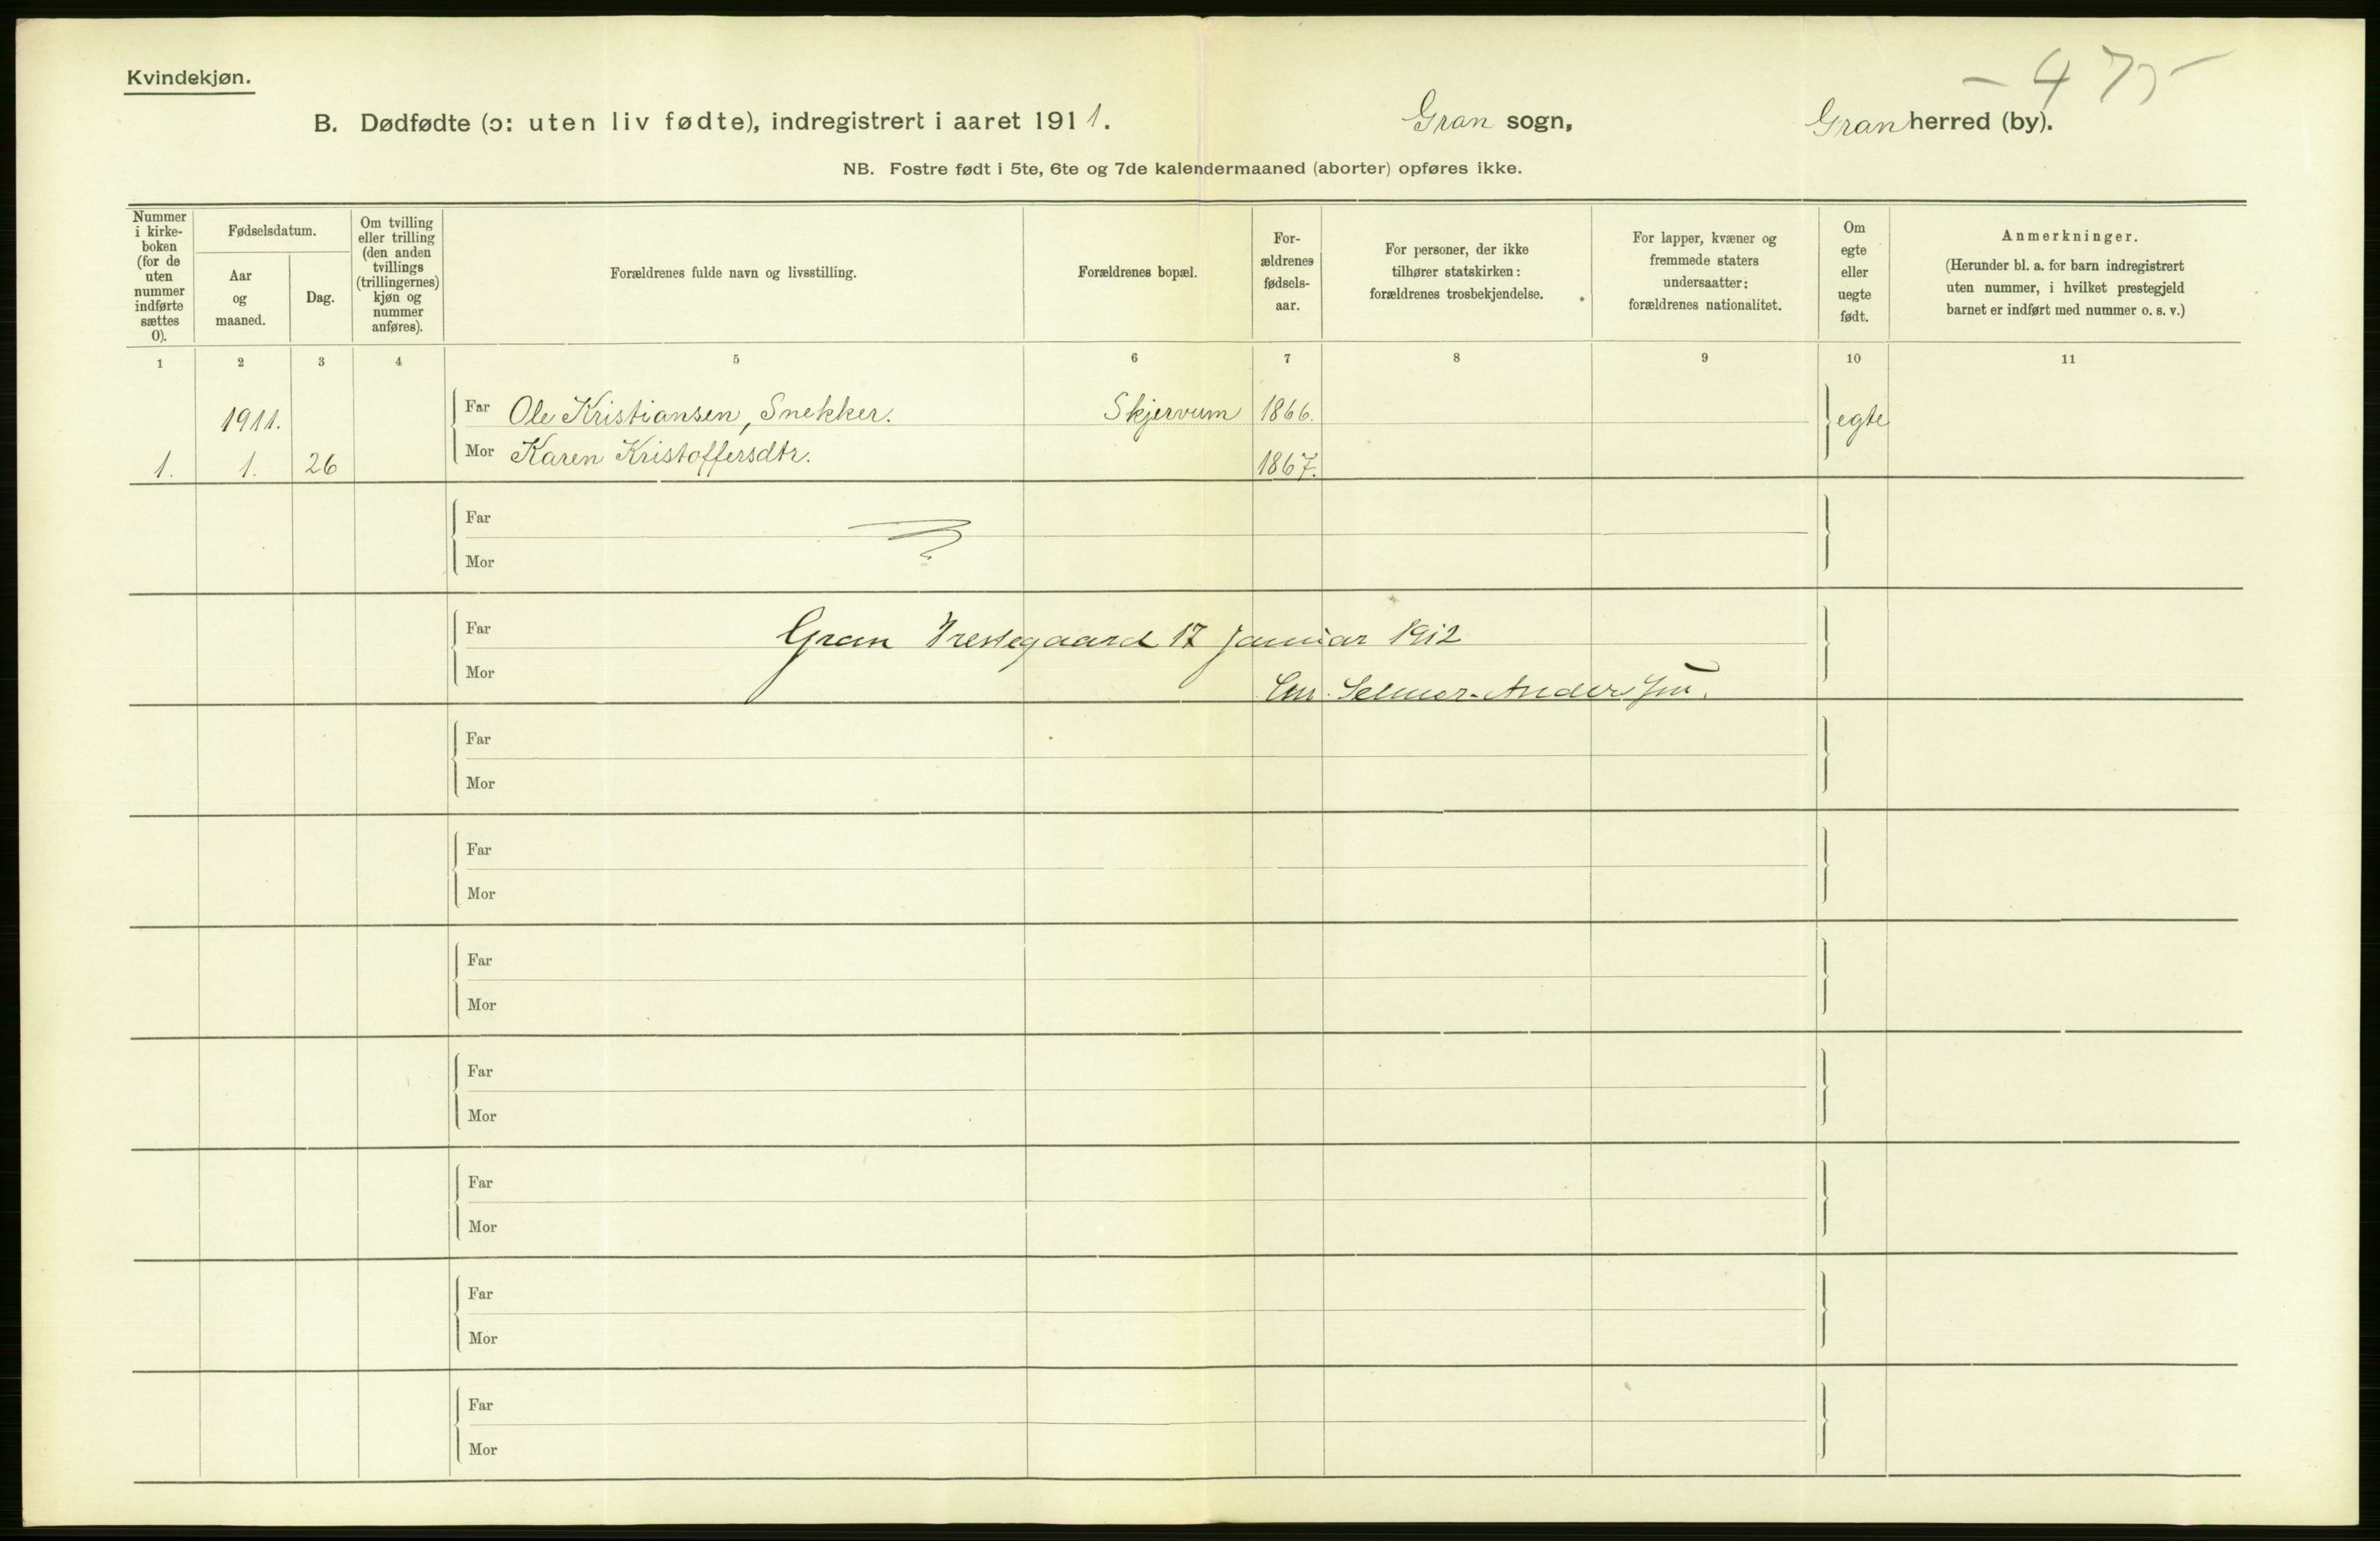 Kvindekjøn.
- 47 -
B. Dødfødte (ɔ: uten liv fødte), indregistrert i aaret 1911. Gran sogn, Gran herred (by).
NB. Fostre født i 5te, 6te og 7de kalendermaaned (aborter) opføres ikke.
Nummer
i kirke-
boken
(for de
uten
nummer
indførte
sættes
0).
Fødselsdatum.
Aar
og
maaned.
Dag.
Om tvilling
eller trilling
(den anden
tvillings
(trillingernes)
kjøn og
nummer
anføres).
Forældrenes fulde navn og livsstilling.
Forældrenes bopæl.
For-
ældrenes
fødsels-
aar.
For personer, der ikke
tilhører statskirken:
forældrenes trosbekjendelse.
For lapper, kvæner og
fremmede staters
undersaatter:
forældrenes nationalitet.
Om
egte
eller
uegte
født.
Anmerkninger.
(Herunder bl. a. for barn indregistrert
uten nummer, i hvilket prestegjeld
barnet er indført med nummer o. s. v.)
1 2 3 4 5 6 7 8 9 10 11
1911. Far Ole Kristiansen, Snekker. Skjervum 1866. egte
1. 1. 26 Mor Karen Kristoffersdtr. 1867.
Far
Mor
Far Gran Prestegaard 17 Januar 1912
Mor Chr. Selmer-Anderssen.
Far
Mor
Far
Mor
Far
Mor
Far
Mor
Far
Mor
Far
Mor
Far
Mor